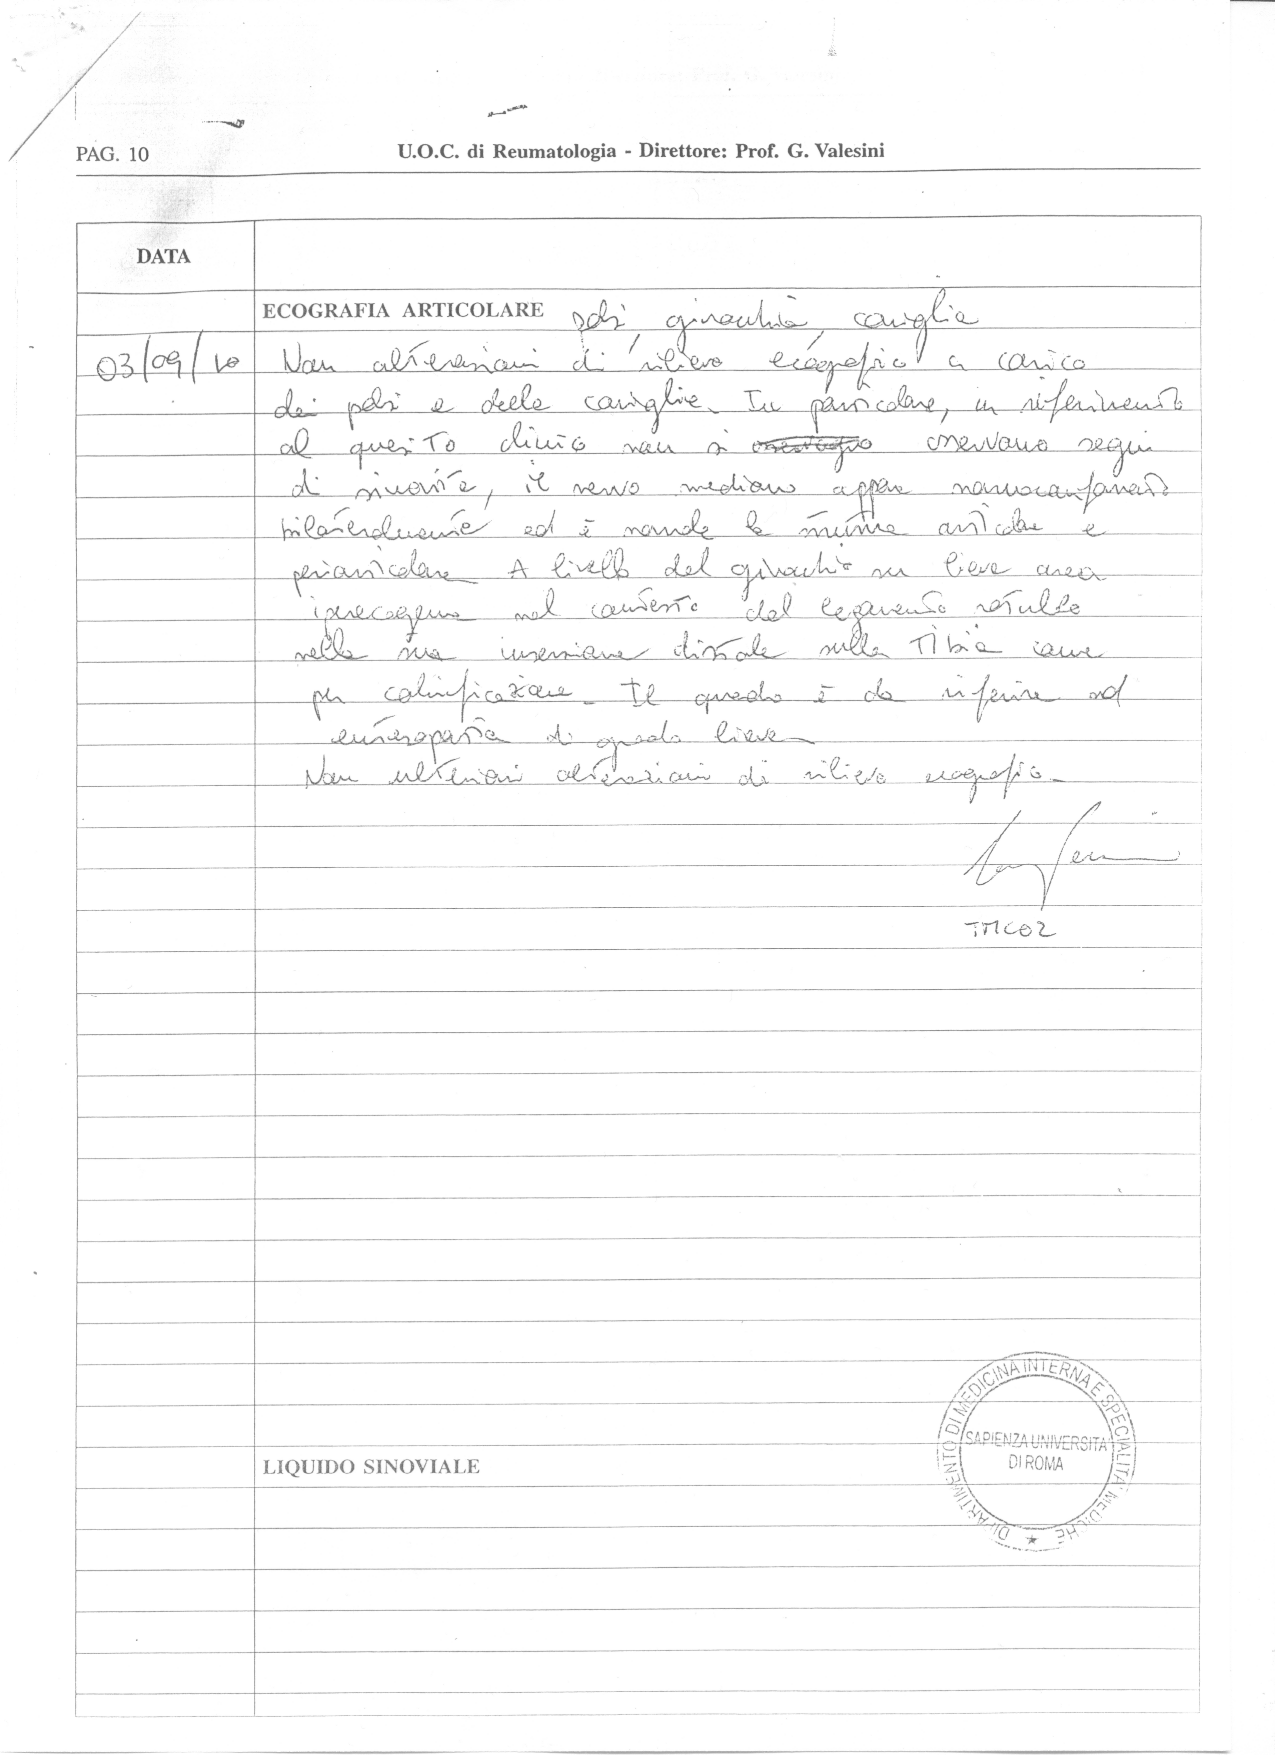 PAG. 10
U.O.C. di Reumatologia - Direttore: Prof. G. Valesini
DATA
ECOGRAFIA ARTICOLARE polsi, ginocchia, caviglia
03/09/10 Non alterazioni di rilievo ecografico a carico
dei polsi e delle caviglie. In particolare, in riferimento
al quesito clinico non si osservano segni
di sinovite, il nervo mediano appare normoconformato
bilateralmente ed è normale la articolare e
periarticolare. A livello del ginocchio sn lieve area
iperecogena nel contesto del legamento rotuleo
nella sua inserzione distale sulla tibia come
per calcificazione. Il quadro è da riferire ad
entesopatia di grado lieve.
Non ulteriori alterazioni di rilievo ecografico.
LIQUIDO SINOVIALE
DIPARTIMENTO DI MEDICINA INTERNA E SPECIALITÀ MEDICHE
SAPIENZA UNIVERSITA'
DI ROMA